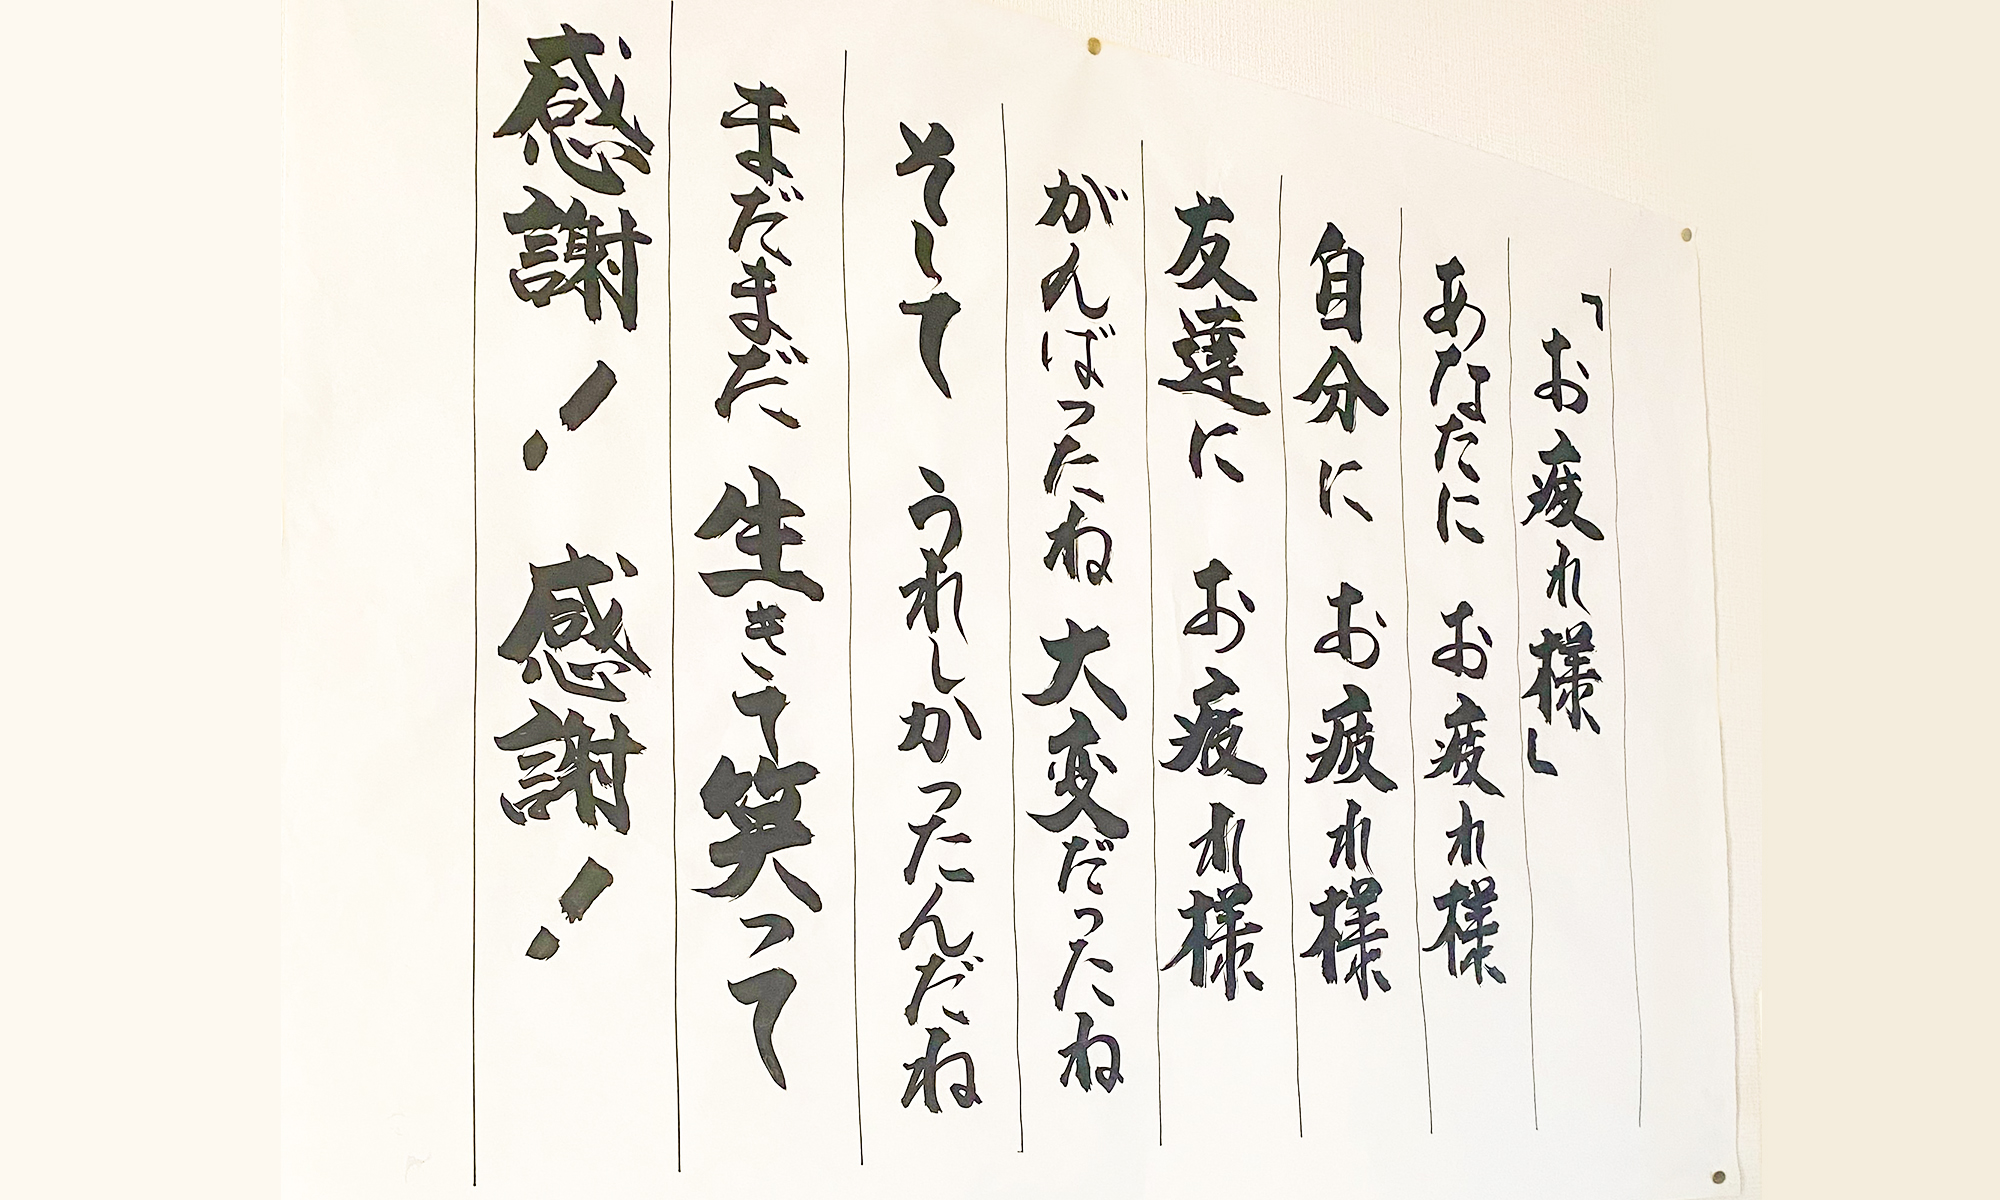 「お疲れ様」
あなたに お疲れ様
自分に お疲れ様
友達に お疲れ様
がんばったね 大変だったね
そして うれしかったんだね
まだまだ 生きて笑って
感謝！ 感謝！